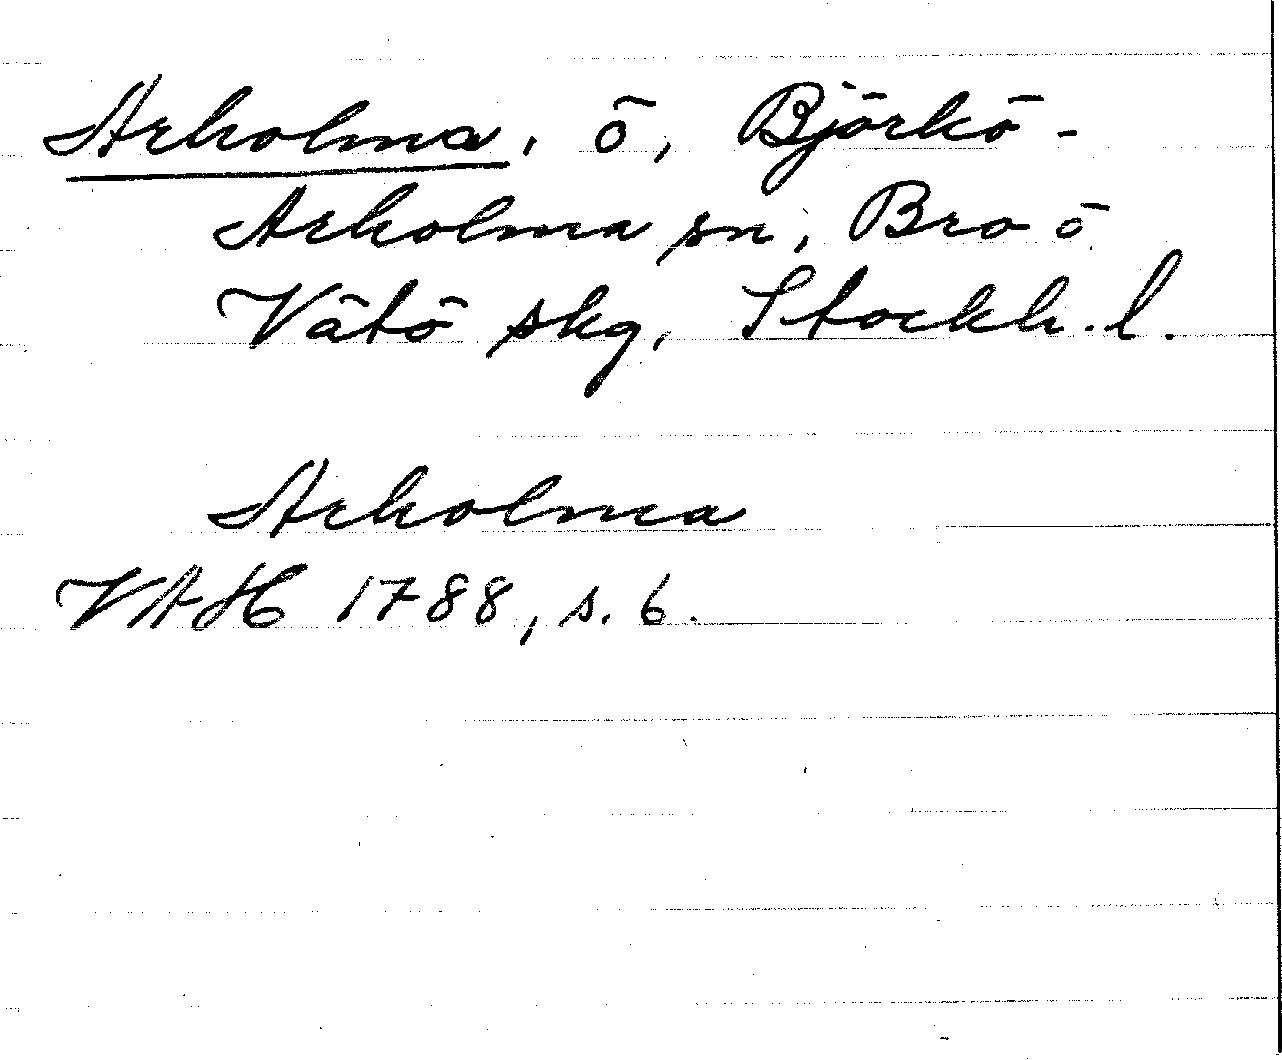 Arholma, ö, Björkö-
Arholma sn, Bro o
Vätö skg, Stockh. l.
Arholma
VAH 1788, s. 6.